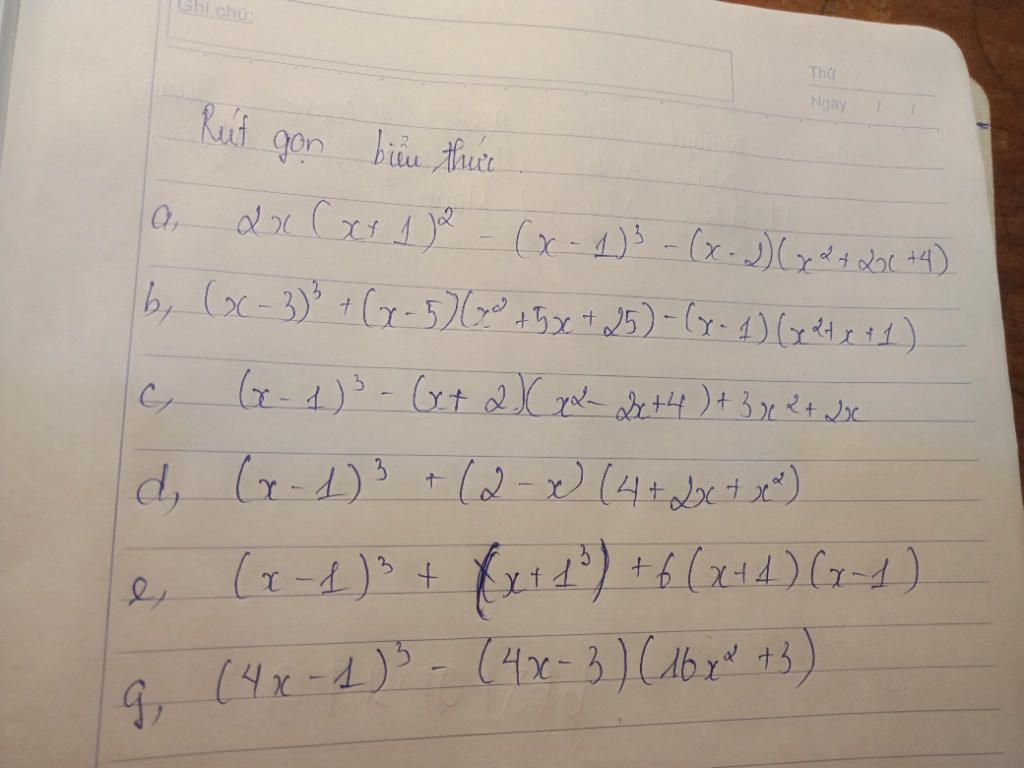 Ghi chú:
Thứ
Ngày / /
Rút gọn biểu thức
a, 2x(x+1)² - (x-1)³ - (x-2)(x²+2x+4)
b, (x-3)³ + (x-5)(x²+5x+25) - (x-1)(x²+x+1)
c, (x-1)³ - (x+2)(x²-2x+4)+3x²+2x
d, (x-1)³ + (2-x)(4+2x+x²)
e, (x-1)³ + (x+1³) +6(x+1)(x-1)
g, (4x-1)³ - (4x-3)(16x²+3)